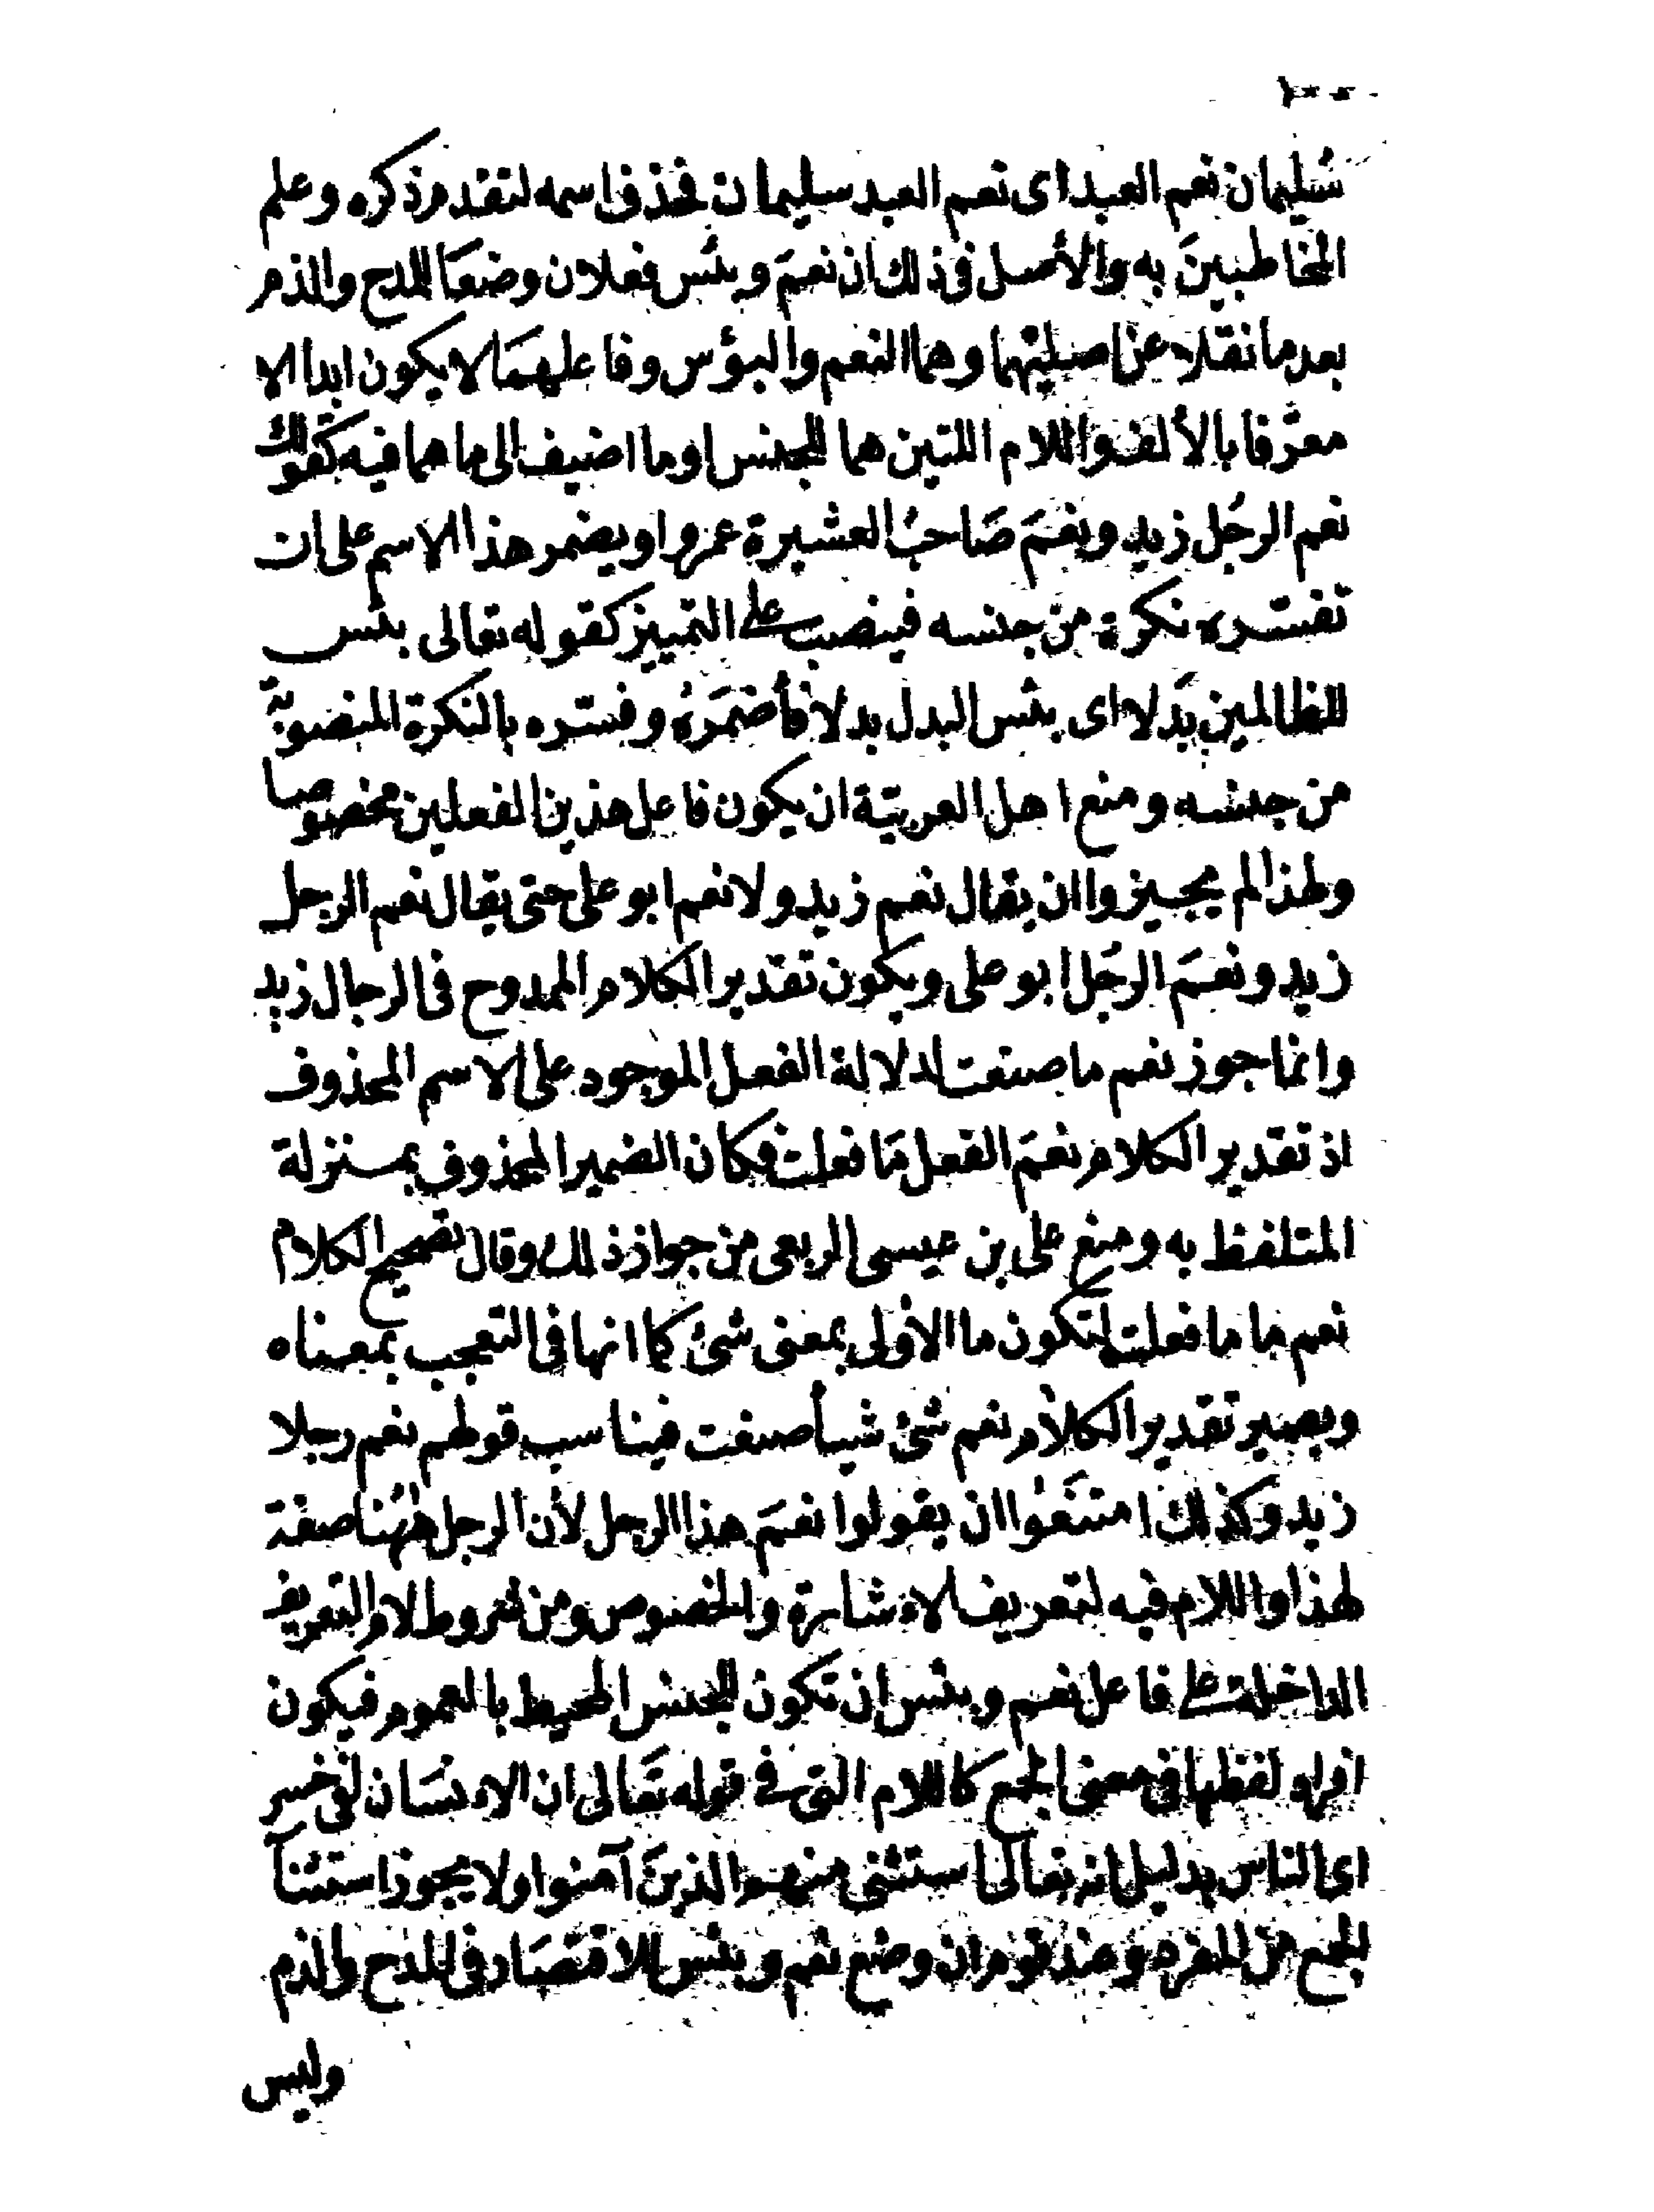 سُليمان نعم العبد اى نعم العبد سليمان فحذف اسمه لتقدم ذكره وعلم
المخاطبينَ به والأصل فى ذلك ان نعمَ وبئس فعلان وضعَا للمدح والذم
بعد ما نقلا عن اصليتهما وهما النعم والبؤس وفاعلهمَا لا يكون ابدا الا
معرّفا بالألف واللام اللتين هما للجنس او ما اضيف الى ما هما فيه كقولك
نعم الرجُل زيد ونعمَ صَاحبُ العشيرة عمرو او يضمر هذا الاسم على ان
تفسّره نكرة من جنسه فينصب على التمييز كقوله تعالى بئس
للظالمين بَدلا اى بئس البدل بدلا فأضمَرهُ وفسّره بالنكرة المنصوبة
من جنسه ومنع اهل العربيّة ان يكون فاعل هذين الفعلين مخصوصا
ولهذا لم يجيزوا ان يقال نعم زيد ولا نعم ابو على حتى يقال نعم الرجل
زيد ونعمَ الرجُل ابو على ويكون تقدير الكلام الممدوح فى الرجال زيد
وانما جوز نعم ما صنعت لدلالة الفعل الموجود على الاسم المحذوف
اذ تقدير الكلام نعمَ الفعل مَا فعلت فكان الضمير المحذوف بمنزلة
المتلفظ به ومنع على بن عيسى الربعى من جواز ذلك وقال تصحيح الكلام
نعم ما ما فعلت لتكون ما الأولى بمعنى شئ كما انها فى التعجب بمعناه
ويصير تقدير الكلام نعم شئ شيأ صنعت فيناسب قولهم نعم رجلا
زيد وكذلك امتنَعُوا ان يقولوا نعمَ هذا الرجل لأن الرجل هٰهُنا صفة
لهذا واللام فيه لتعريف الاشارة والخصوص ومن شروط لام التعريف
الداخلة على فاعل نعم وبئس ان تكون للجنس المحيط بالعموم فيكون
افراد لفظها فى معنى الجمع كاللام التى فى قوله تعَالى ان الانسَان لفى خسر
اى الناس بدليل انه تعالى استثنى منهم الذينَ آمنوا ولا يجوز استثنآ
الجمع من المفرد وعند قوم ان وضع نعم وبئس للاقتصَاد فى المدح والذم
وليس